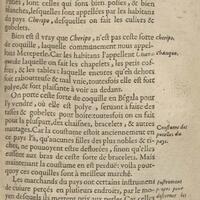 rades, sont celles qui sont bien polies, & bien
blanches, lesquelles sont appellées par les habitans
du pays Cheripo, desquelles on fait les culiers &
gobelets.
Bien est il vray que Cheripo, n'est pas ceste sorte
de coquille, laquelle communement nous appel-
lons Mereperle. Car les habitans l'appellent Chan-
quo de laquelle on fait les chapelets, les petis cof-
frets, & les tables laquelle encores qu'elle dehors
soit aspre & mal vnie, toutesfois au dedans est
si plaisante à voir
On porte ceste sorte de coquille en Bẽgala pour
l'y vendre, où elle est polye, seruant à faire des
tasses & gobelets pour boire: toutesfois on en fait
pour la pluspart, des chaisnes, bracelets, & autres
ouurages. Car la coustume estoit anciennement en
ce pays là, qu'aucunes des filles nobles & ri-
ches, ne pouuoyent estre deflorées, sinon qu'elles
eussent aux bras de ceste sorte de bracelets. Mais
maintenant la coustume en est perdue: voila pour-
quoy ces coquilles sont à meilleur marché.
Les marchands du pays ont certain instrument
de cuiure percé en plusieurs endroits, par le mo-
yen desquels ils mettent prix aux perles. Car celles
chanquo.
Coustume des
pucelles du
pays.
Instrument
propre pour
les